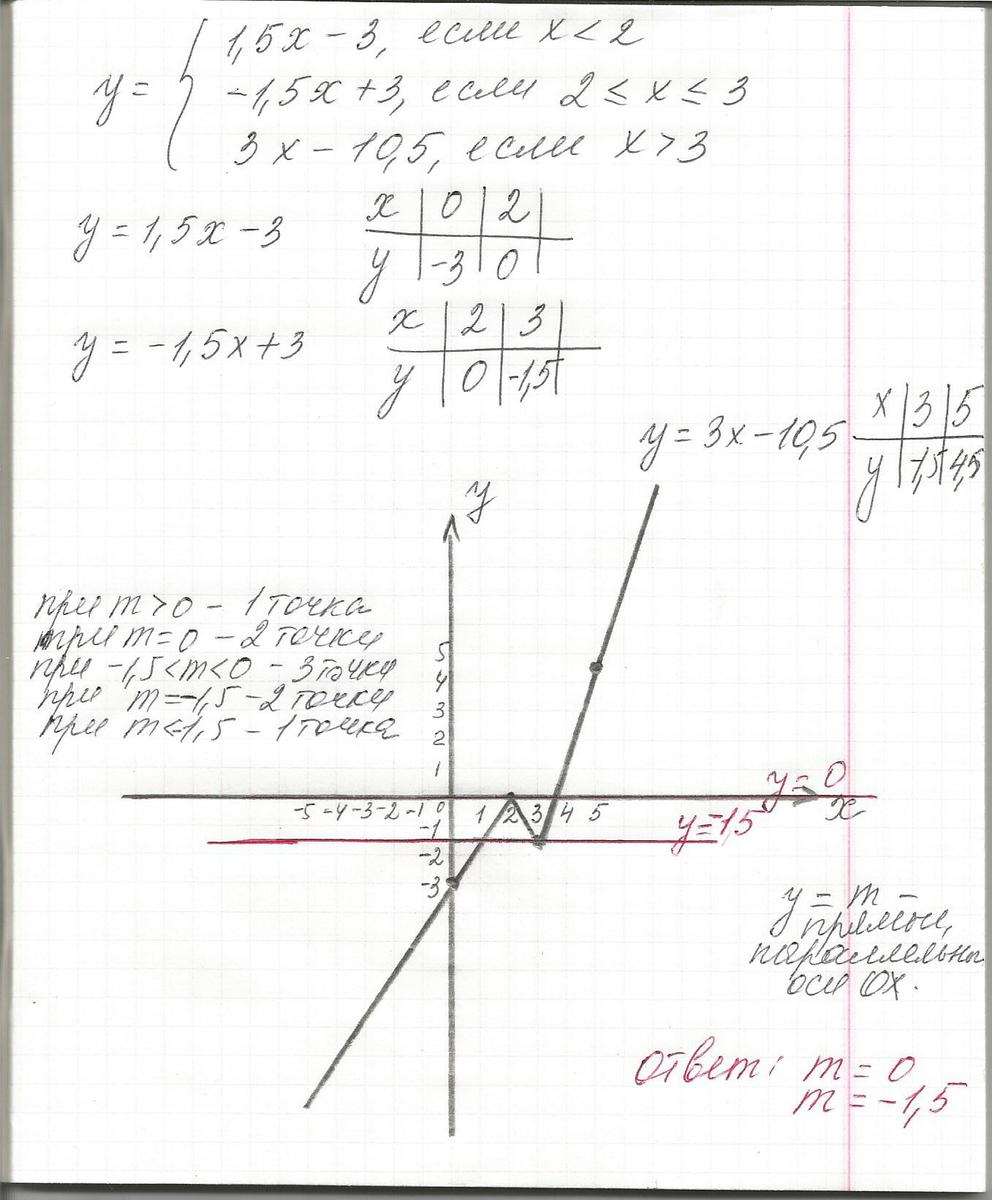 y = { 1,5x − 3, если x < 2
−1,5x + 3, если 2 ≤ x ≤ 3
3x − 10,5, если x > 3
y = 1,5x − 3
x | 0 | 2 |
y | -3 | 0 |
y = −1,5x + 3
x | 2 | 3 |
y | 0 | -1,5 |
y = 3x − 10,5
x | 3 | 5
y | -1,5 | 4,5
y
при m > 0 − 1 точка
при m = 0 − 2 точки
при −1,5 < m < 0 − 3 точки
при m = −1,5 − 2 точки
при m < −1,5 − 1 точка
5
4
3
2
1
y = 0
-5 -4 -3 -2 -1 0 1 2 3 4 5 x
-1
y = -1,5
-2
-3
y = m −
прямые,
параллельны
оси Ox.
Ответ: m = 0
m = −1,5